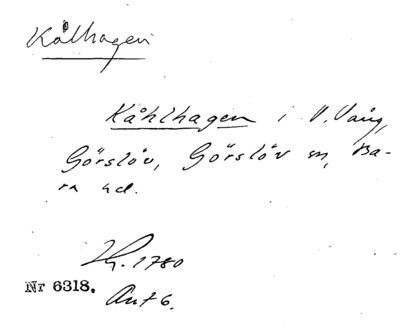 Kålhagen
Kåhlhagen i V. Vång,
Görslöv, Görslöv sn, Ba-
ra hd.
1780
Nr 6318.
Ant 6.